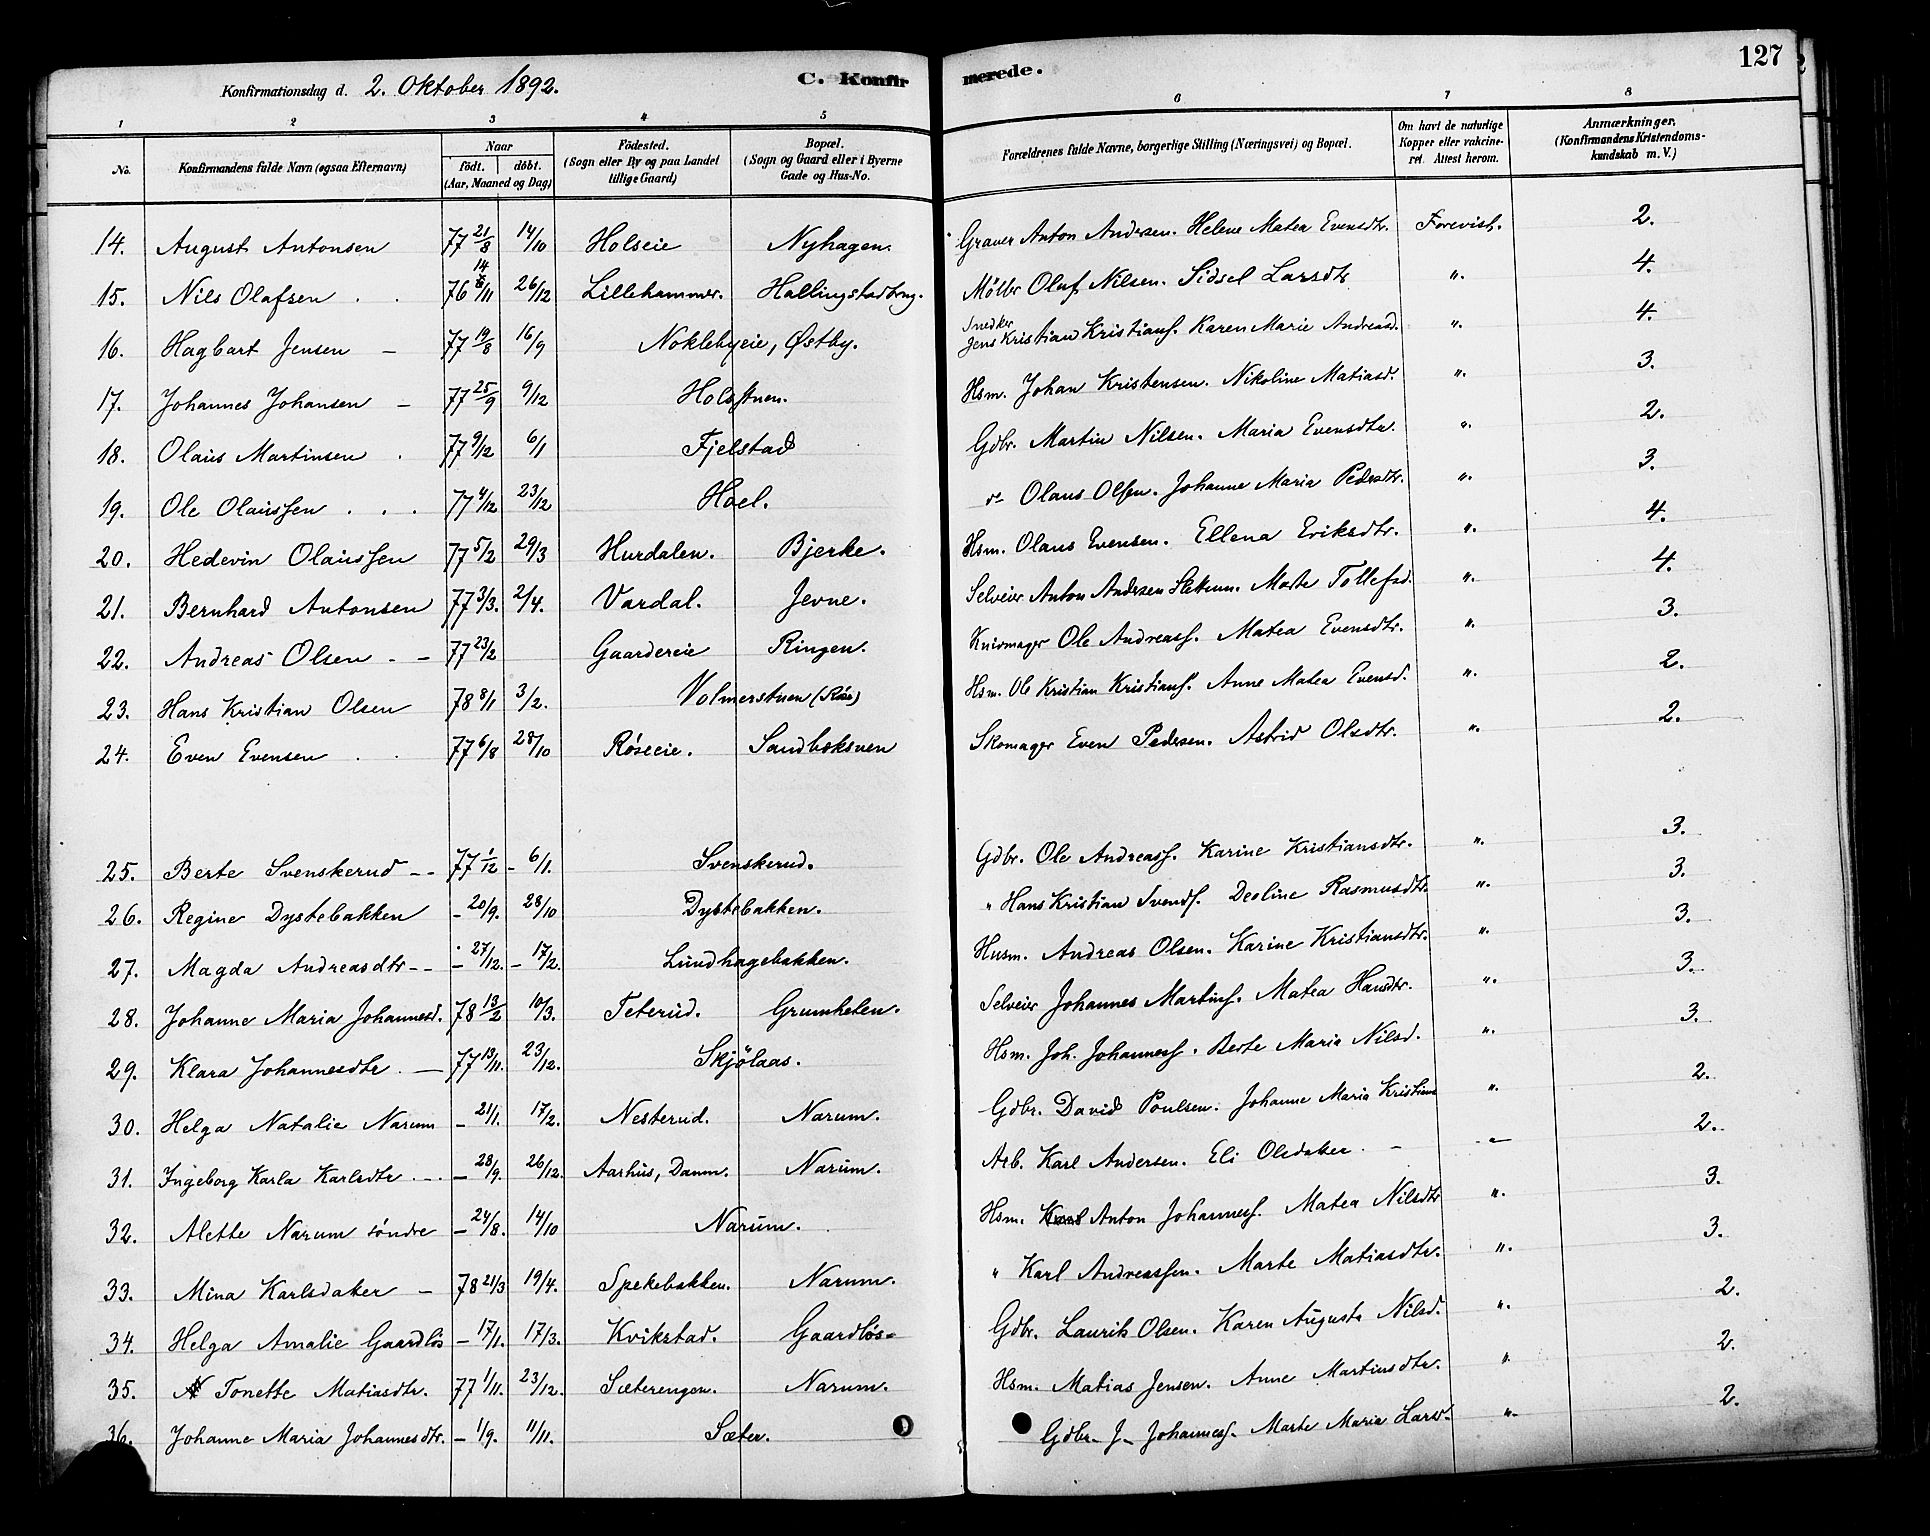 127
Konfirmationsdag d. 2. Oktober 1892. C. Konfirmerede.
1 2 3 4 5 6 7 8
No. Konfirmandens fulde Navn (ogsaa Efternavn) Naar født. døbt. (Aar, Maaned og Dag) Fødested. (Sogn eller By og paa Landet tillige Gaard) Bopæl. (Sogn og Gaard eller i Byerne Gade og Hus-No. Forældrenes fulde Navne, borgerlige Stilling (Næringsvei) og Bopæl. Om havt de naturlige Kopper eller vakcineret. Attest herom. Anmærkninger. (Konfirmandens Kristendomskundskab m. V.)
14. August Antonsen 77 21/8 14/10 Holseie Nyhagen. Graver Anton Andersen. Helene Matea Evensdtr. Forevist. 2.
15. Nils Olafsen 76 14/11 26/12 Lillehammer. Hallingstadbrug. Mølbr Oluf Nilsen. Sidsel Larsdtr ". 4.
16. Hagbart Jensen – 77 19/8 16/9 Noklebyeie, Østby. Snedker Jens Kristian Kristians. Karen Marie Andreasd. ". 4.
17. Johannes Johansen – 77 25/9 9/12 Holsstuen. Hsm. Johan Kristensen. Nikoline Matiasd. ". 3.
18. Olaus Martinsen 77 9/12 6/1 Fjelstad Gdbr. Martin Nilsen. Maria Evensdtr. ". 2.
19. Ole Olaussen 77 4/12 23/12 Hoel. do Olaus Olsen. Johanne Maria Pedersdtr. ". 3.
20. Hedevin Olaussen 77 5/2 29/3 Hurdalen. Bjerke. Hsm. Olaus Evensen. Ellena Eriksdtr. ". 4.
21. Bernhard Antonsen 77 3/3. 2/4. Vardal. Jevne. Selveier Anton Andersen Marte Tollefsd. ". 4.
22. Andreas Olsen – – 77 23/2 Gaardereie Ringen. Knivmager Ole Andreass. Matea Evensdtr. ". 3.
23. Hans Kristian Olsen 78 8/1 3/2. Volmerstuen (Røse) Hsm. Ole Kristian Kristians. Anne Matea Evensd. ". 2.
24. Even Evensen 77 6/8 28/10 Røseeie. Sandbæksven Skomager Even Pedersen. Astrid Olsdtr. ". 2.
25. Berte Svenskerud – – 77 1/12 – 6/1. Svenskerud. Gdbr. Ole Andreass. Karine Kristiansdtr. ". 3.
26. Regine Dystebakken – 20/9. 28/10 Dystebakken. " Hans Kristian Svends. Deoline Rasmusdtr. ". 3.
27. Magda Andreasdtr – – – 27/12. – 17/2. Lundhagebakken. Husm. Andreas Olsen. Karine Kristiansdtr. ". 3.
28. Johanne Maria Johannesd. 78 13/2 10/3. Teterud. Grumheten. Selveier Johannes Martins. Matea Hansdtr. ". 3.
29. Klara Johannesdtr. – 77 13/11. 23/12. Skjølaas. Hsm. Joh. Johanness. Berte Maria Nilsd. ". 3.
30. Helga Natalie Narum – 21/1. 17/2. Nesterud. Narum. Gdbr. David Poulsen. Johanne Maria Kristians ". 2.
31. Ingeborg Karla Karlsdtr – – 28/9. 26/12. Aarhus, Danm. Narum. Arb. Karl Andersen. Eli Olsdater. – – " – 2.
32. Alette Narum søndre – 24/8. 14/10 Narum. Hsm. Karl Anton Johanness. Matea Nilsdtr ". 3.
33. Mina Karlsdater – 78 21/3 19/4. Spekebakken. Narum. " Karl Andreassen. Marte Matiasdtr. ". 3.
34. Helga Amalie Gaardløs – 17/1. 17/3. Kvikstad. Gaardløs – Gdbr. Laurits Olsen. Karen Augusta Nilsd. ". 2.
35. Tonette Matiasdtr. 77 1/11. 23/12. Sæterengen. Narum. Hsm. Matias Jensen. Anne Martinsdtr. ". 2.
36. Johanne Maria Johannesdtr. – 1/9. 11/11. Sæter. Gdbr. J. Johanness. Marte Maria Larsd. ". 2.